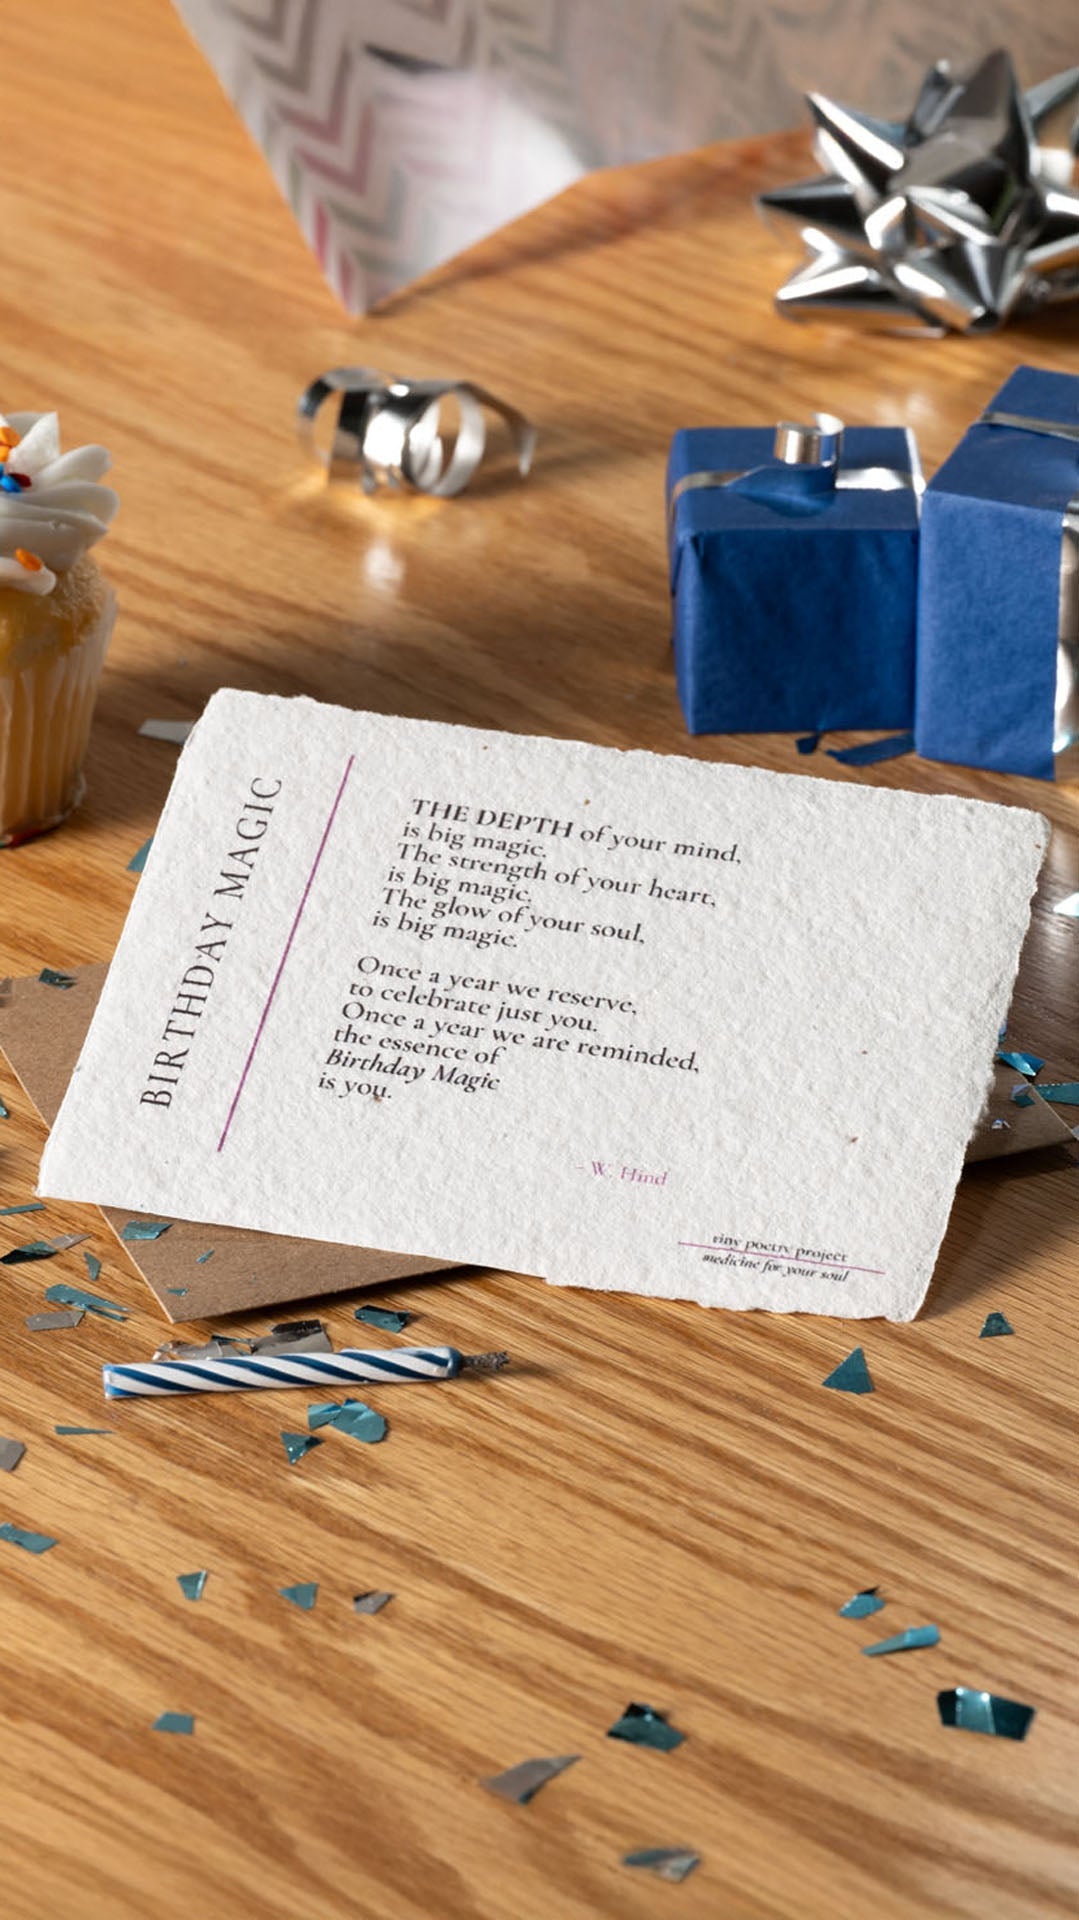 BIRTHDAY MAGIC
THE DEPTH of your mind,
is big magic.
The strength of your heart,
is big magic.
The glow of your soul,
is big magic.
Once a year we reserve,
to celebrate just you.
Once a year we are reminded,
the essence of
Birthday Magic
is you.
- W. Hind
tiny poetry project
medicine for your soul